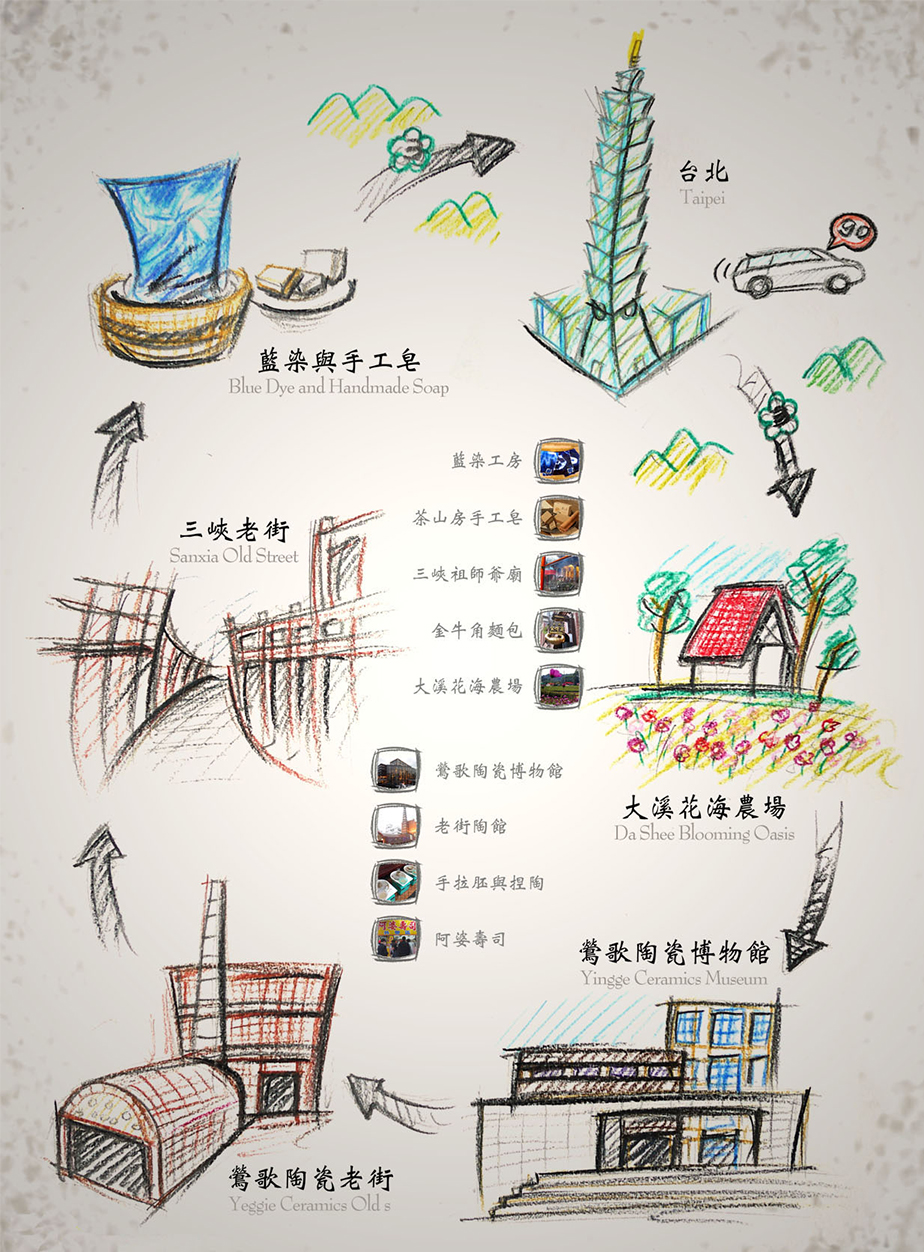 台北
Taipei
go
藍染與手工皂
Blue Dye and Handmade Soap
藍染工房
茶山房手工皂
三峽老街
Sanxia Old Street
三峽祖師爺廟
金牛角麵包
大溪花海農場
鶯歌陶瓷博物館
老街陶館
手拉胚與捏陶
阿婆壽司
阿婆壽司
大溪花海農場
Da Shee Blooming Oasis
鶯歌陶瓷博物館
Yingge Ceramics Museum
鶯歌陶瓷老街
Yeggie Ceramics Old s